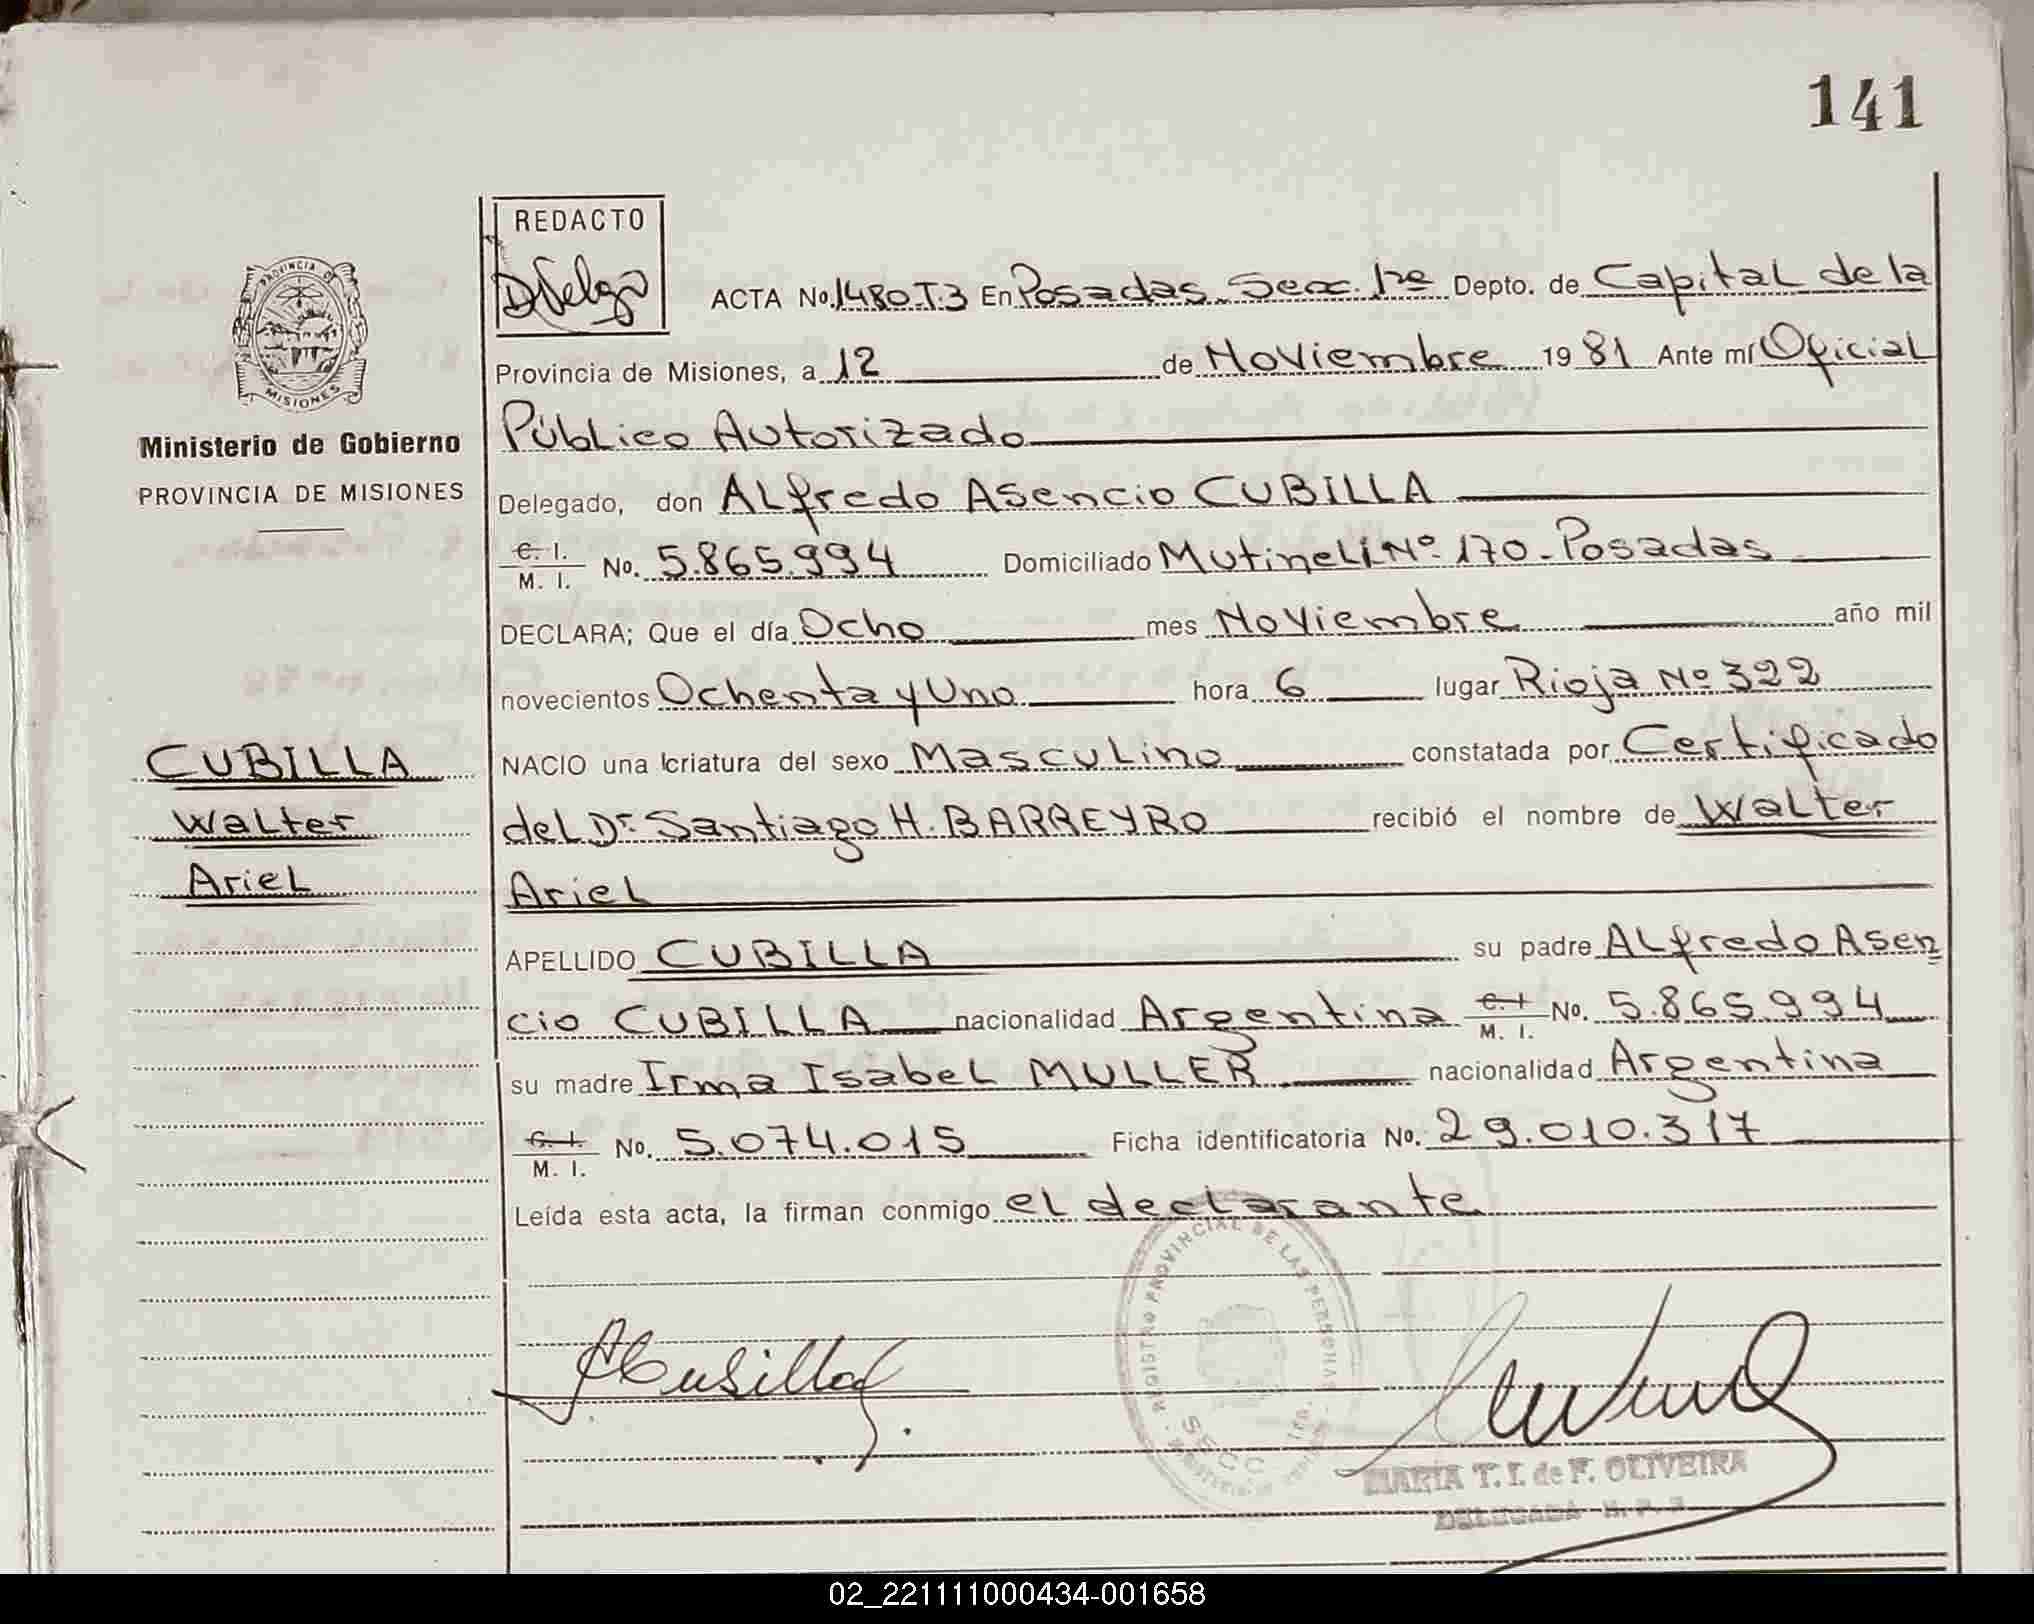 141
REDACTO
PROVINCIA DE
MISIONES
Ministerio de Gobierno
PROVINCIA DE MISIONES
CUBILLA
Walter
Ariel
ACTA No. 1480.T.3 En Posadas Secc. 1ra Depto. de Capital de la
Provincia de Misiones, a 12 de Noviembre 19 81 Ante mí Oficial
Público Autorizado
Delegado, don Alfredo Asencio CUBILLA
C. I. / M. I. No. 5.865.994 Domiciliado Mutineli Nº 170 - Posadas
DECLARA; Que el día Ocho mes Noviembre año mil
novecientos Ochenta y Uno hora 6 lugar Rioja Nº 322
NACIO una criatura del sexo Masculino constatada por Certificado
del Dr. Santiago H. BARREYRO recibió el nombre de Walter
Ariel
APELLIDO CUBILLA su padre Alfredo Asen
cio CUBILLA nacionalidad Argentina C. I. / M. I. No. 5.865.994
su madre Irma Isabel MULLER nacionalidad Argentina
C. I. / M. I. No. 5.074.015 Ficha identificatoria No. 29.010.317
Leída esta acta, la firman conmigo el declarante
REGISTRO PROVINCIAL DE LAS PERSONAS
SECC 1ra.
ACubilla
MARIA T. I. de F. OLIVEIRA
DELEGADA R. P. P.
02_221111000434-001658